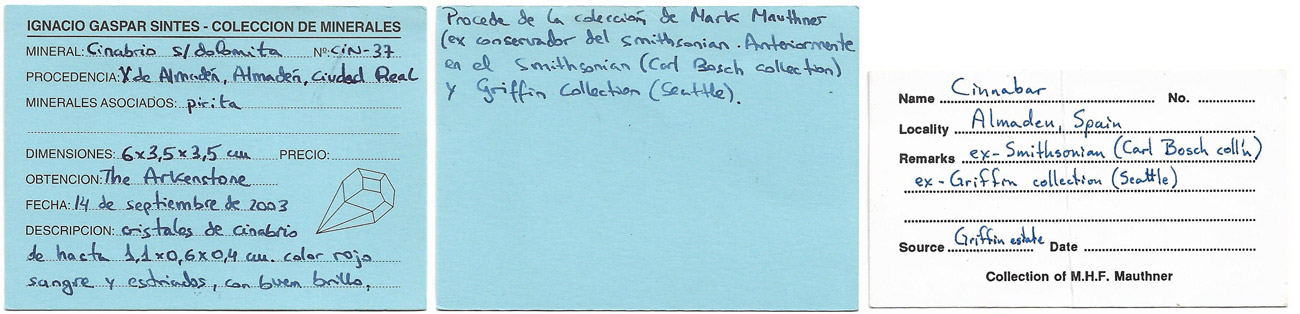 IGNACIO GASPAR SINTES - COLECCION DE MINERALES
MINERAL: Cinabrio s/dolomita Nº: CIN-37
PROCEDENCIA: Yde Almadén, Almadén, Ciudad Real
MINERALES ASOCIADOS: pirita
DIMENSIONES: 6x3,5x3,5 cm PRECIO:
OBTENCION: The Arkenstone
FECHA: 14 de septiembre de 2003
DESCRIPCION: cristales de cinabrio
de hasta 1,1x0,6x0,4 cm. color rojo
sangre y estriados, con buen brillo,
Procede de la colección de Mark Mauthner
(ex conservador del Smithsonian. Anteriormente
en el Smithsonian (Carl Bosch collection)
y Griffin Collection (Seattle).
Name Cinnabar No.
Locality Almaden, Spain
Remarks ex-Smithsonian (Carl Bosch coll'n)
ex-Griffin collection (Seattle)
Source Griffin estate Date
Collection of M.H.F. Mauthner